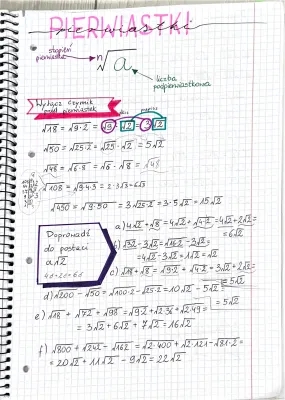 PIERWIASTKI
pierwiastki
stopień
pierwiastka
ⁿ√a
liczba
podpierwiastkowa
Wyłącz czynnik
przed pierwiastek
√18 = √9·2 = √9·√2 = 3√2
√50 = √25·2 = √25·√2 = 5√2
√48 = √6·8 = √6·√8 = √48
√108 = √9·4·3 = 2·3√3=6√3
√450 = √9·50 = 3√25·2 = 3·5√2 = 15√2
Doprowadź
do postaci
a√2
a) 4√2+√8 = 4√2+√4·2 = 4√2+2√2=
=6√2
b) √32-3√2 = √16·2-3√2=
=4√2-3√2=1√2=√2
c) √18+√8 = √9·2+√4·2 = 3√2+2√2=
=5√2
d) √200-√50 = √100·2-√25·2=10√2-5√2=
=5√2
e) √18+√72+√98 = √9·2+√2·36+√2·49=
=3√2+6√2+7√2=16√2
f) √800+√242-√162 = √2·400+√2·121-√81·2=
=20√2+11√2-9√2=22√2